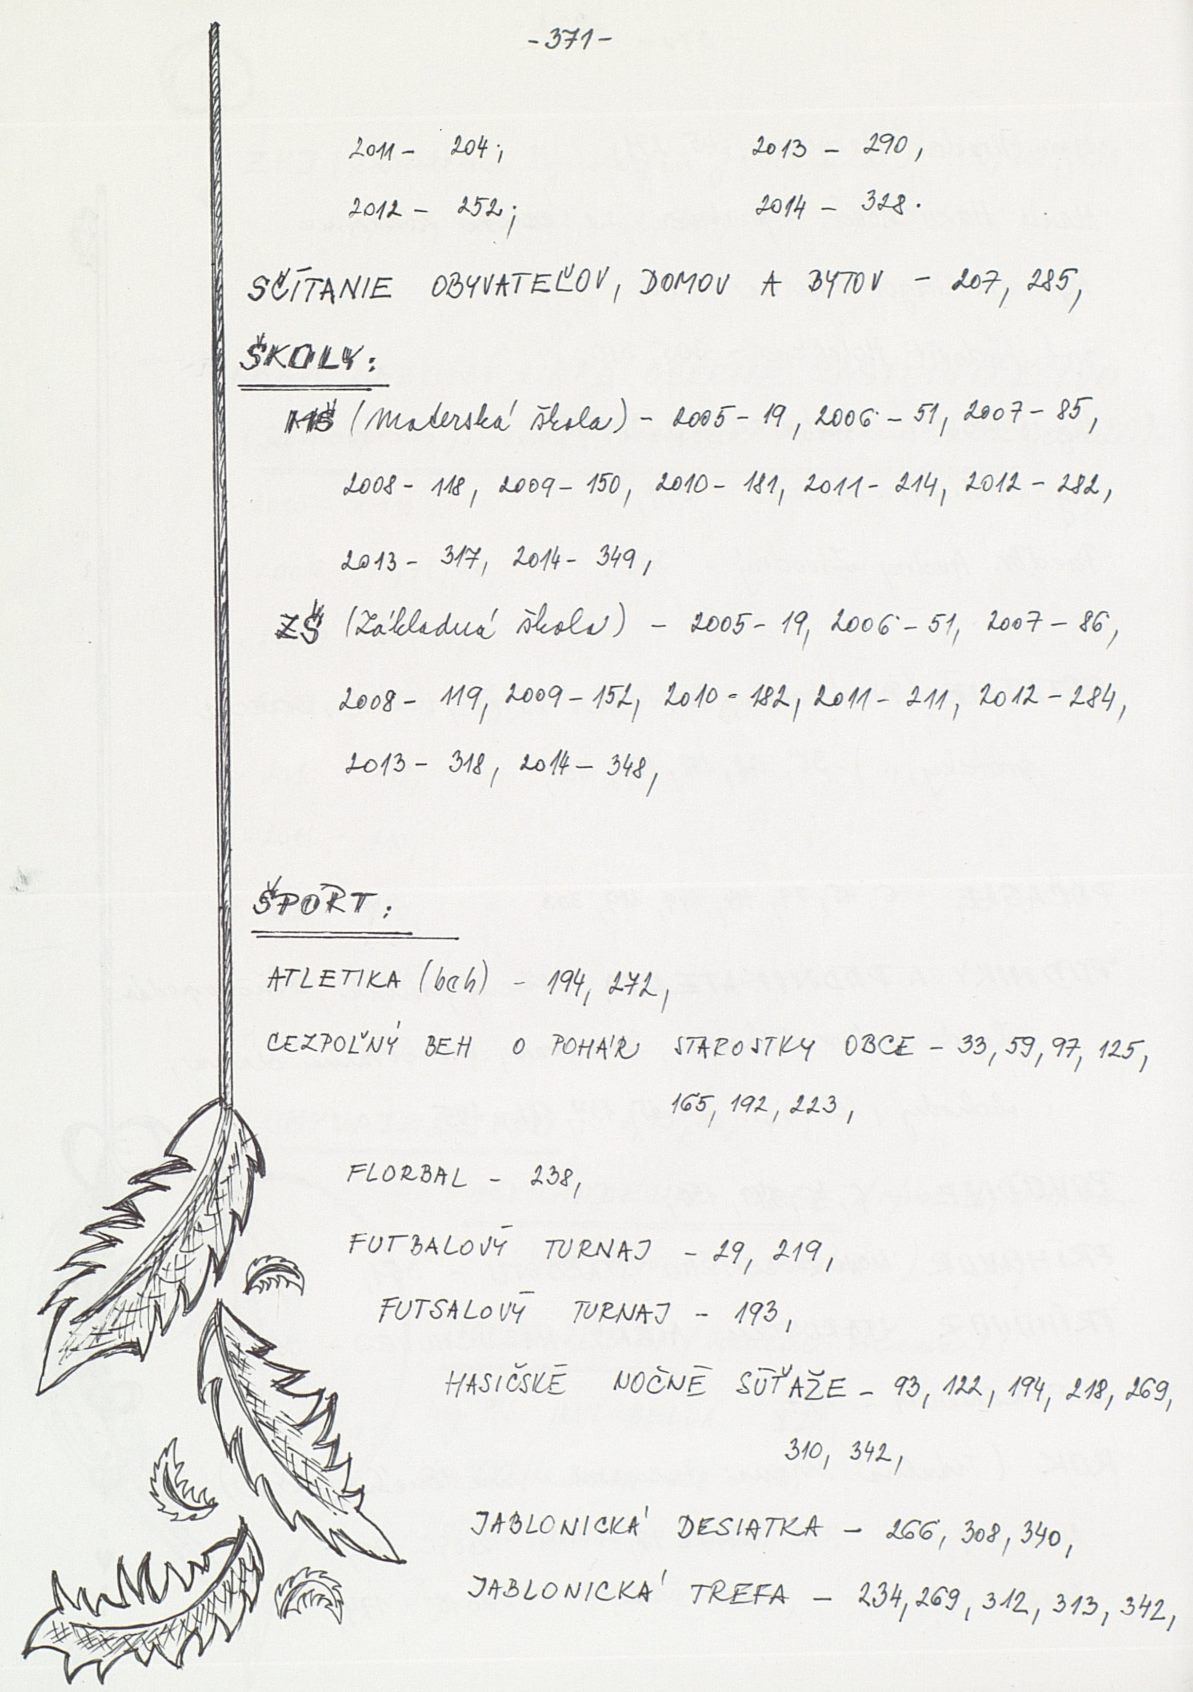 -371-
2011 - 204; 2013 - 290,
2012 - 252; 2014 - 328.
SČÍTANIE OBYVATEĽOV, DOMOV A BYTOV - 207, 285,
ŠKOLY:
MŠ (Materská škola) - 2005 - 19, 2006 - 51, 2007 - 85,
2008 - 118, 2009 - 150, 2010 - 181, 2011 - 214, 2012 - 282,
2013 - 317, 2014 - 349,
ZŠ (Základná škola) - 2005 - 19, 2006 - 51, 2007 - 86,
2008 - 119, 2009 - 152, 2010 - 182, 2011 - 211, 2012 - 284,
2013 - 318, 2014 - 348,
ŠPORT:
ATLETIKA (beh) - 194, 272,
CEZPOĽNÝ BEH O POHÁR STAROSTKY OBCE - 33, 59, 97, 125,
165, 192, 223,
FLORBAL - 238,
FUTBALOVÝ TURNAJ - 29, 219,
FUTSALOVÝ TURNAJ - 193,
HASIČSKÉ NOČNÉ SÚŤAŽE - 93, 122, 194, 218, 269,
310, 342,
JABLONICKÁ DESIATKA - 266, 308, 340,
JABLONICKÁ TREFA - 234, 269, 312, 313, 342,